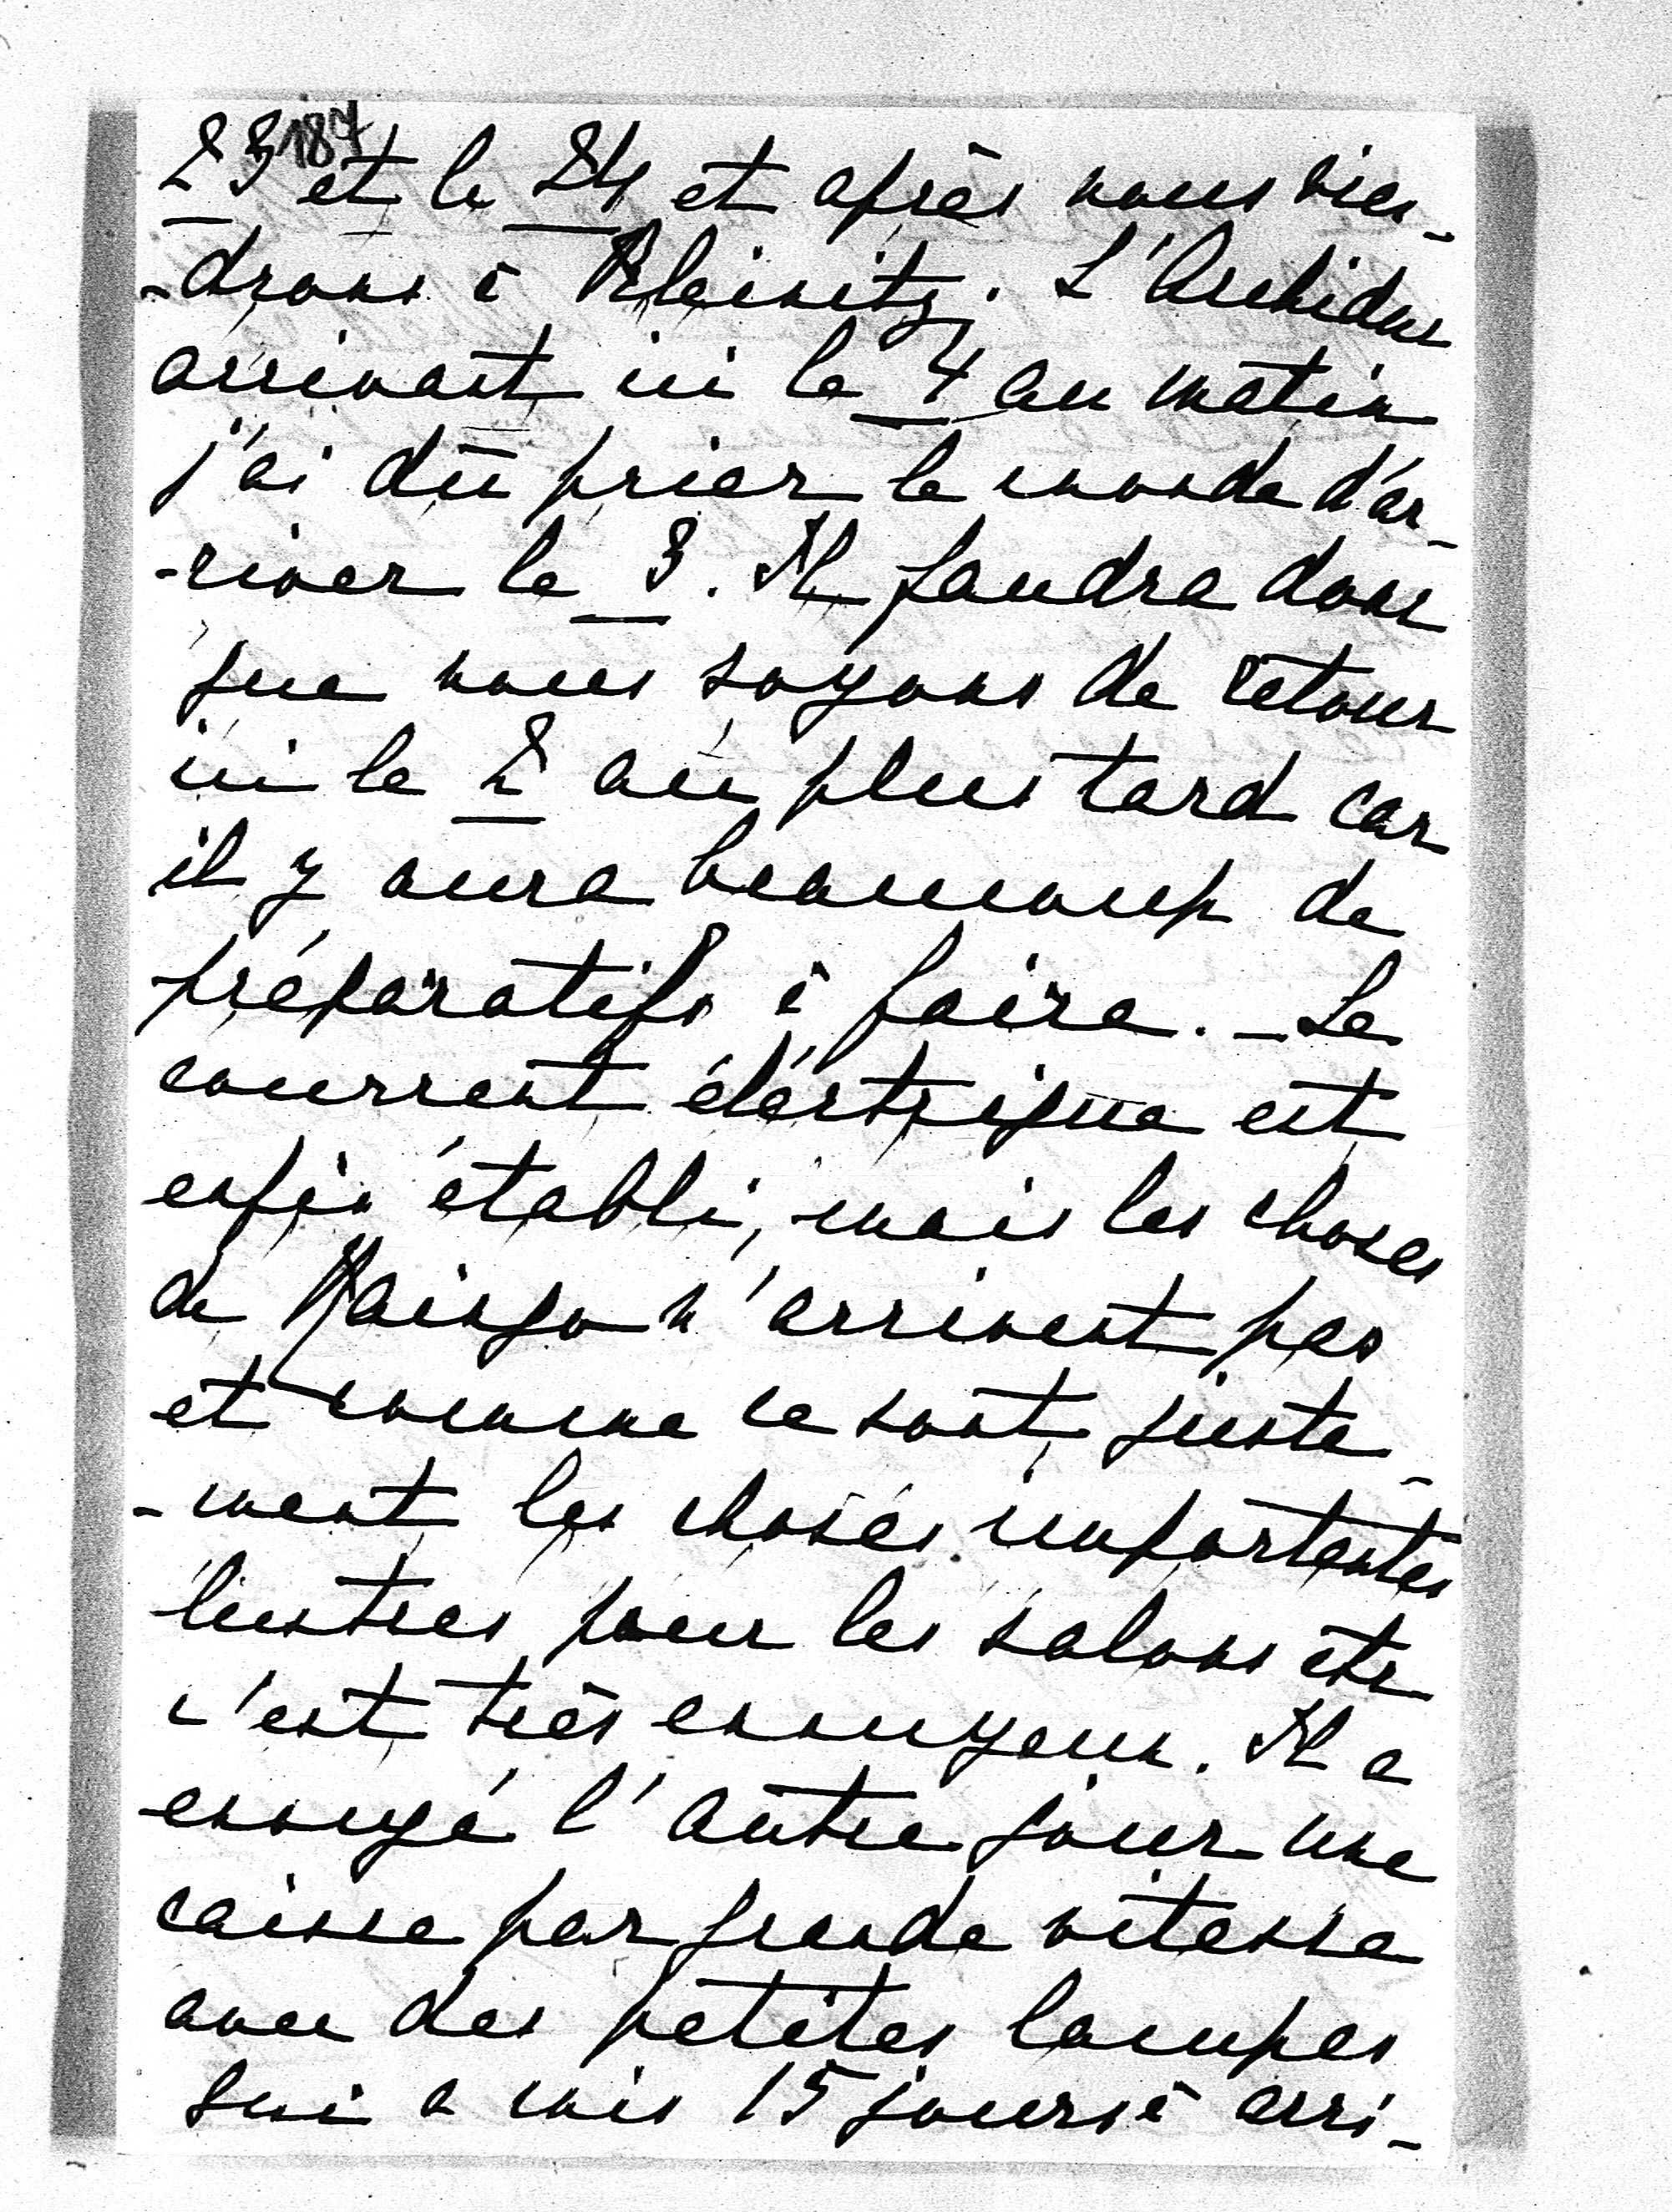 187
23 et le 24 et après nous vien-
-drons à Kleinitz. L'Archiduc
arrivant ici le 4 au matin
j'ai dû prier le monde d'ar-
-river le 3. Il faudra donc
que nous soyons de retour
ici le 2 au plus tard car
il y aura beaucoup de
préparatifs à faire. _ Le
courrant éléctrique est
enfin établi, mais les choses
de Maingo n'arrivent pas
et comme ce sont juste-
-ment les choses importantes
lustres pour les salons etc
c'est très ennuyeux. Il a
envoyé l'autre jour une
caisse par grande vitesse
avec des petites lampes
qui a mis 15 jours à arri-